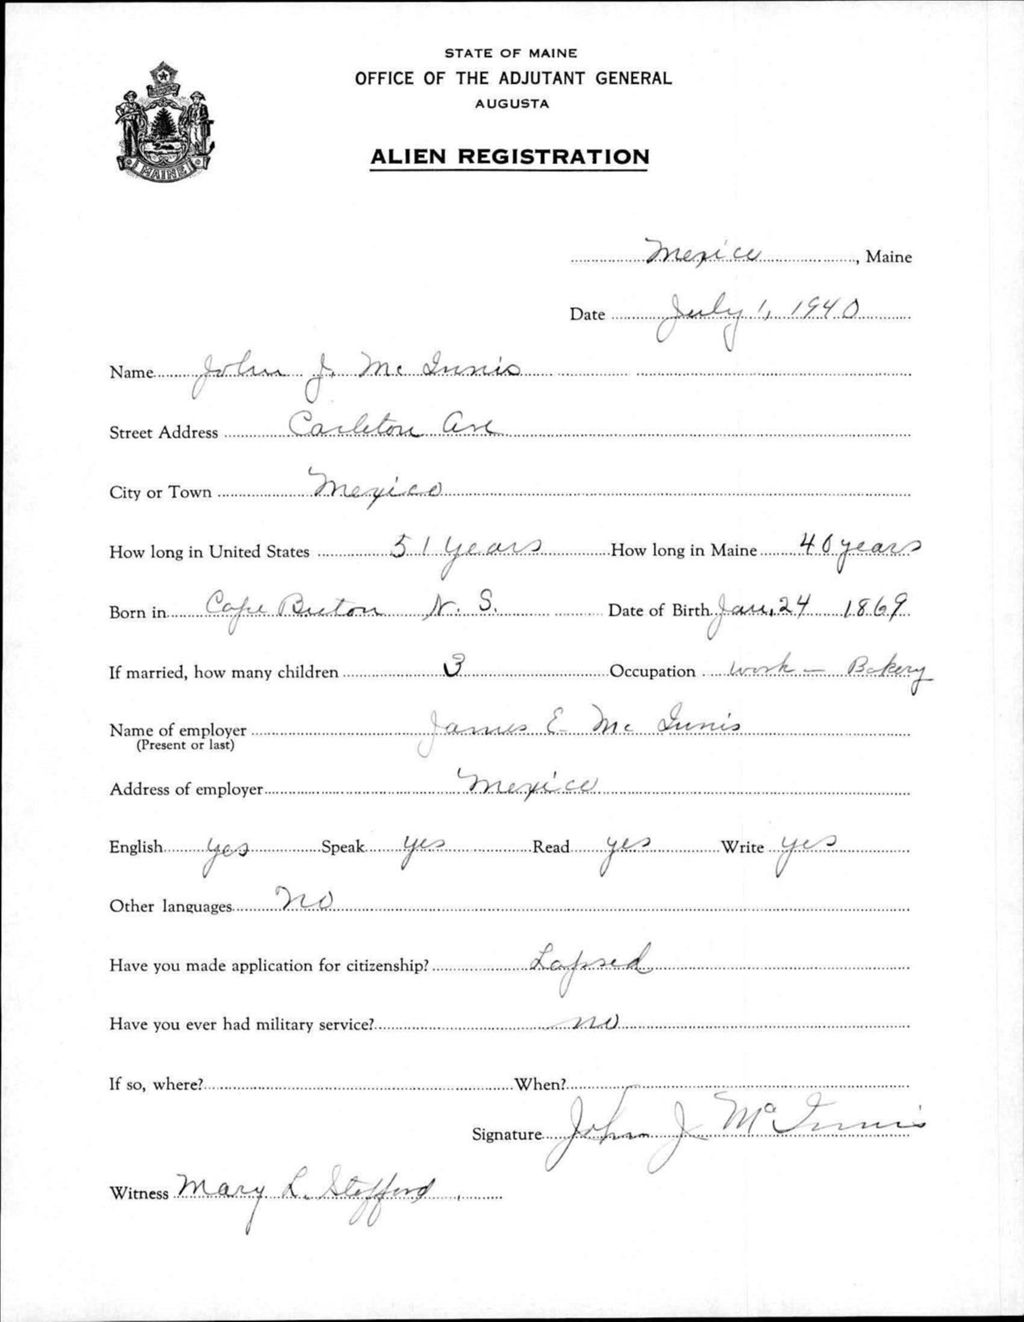 STATE OF MAINE
OFFICE OF THE ADJUTANT GENERAL
AUGUSTA
ALIEN REGISTRATION
MAINE
Mexico, Maine
Date July 1, 1940
Name John J. Mc Innis
Street Address Carleton Ave
City or Town Mexico
How long in United States 51 years How long in Maine 40 years
Born in Cape Breton N. S. Date of Birth Jan, 24 1869
If married, how many children 3 Occupation work – Bakery
Name of employer James E. Mc Innis
(Present or last)
Address of employer Mexico
English yes Speak yes Read yes Write yes
Other languages no
Have you made application for citizenship? Lapsed
Have you ever had military service? no
If so, where? When?
Signature John J McInnis
Witness Mary L. Stafford